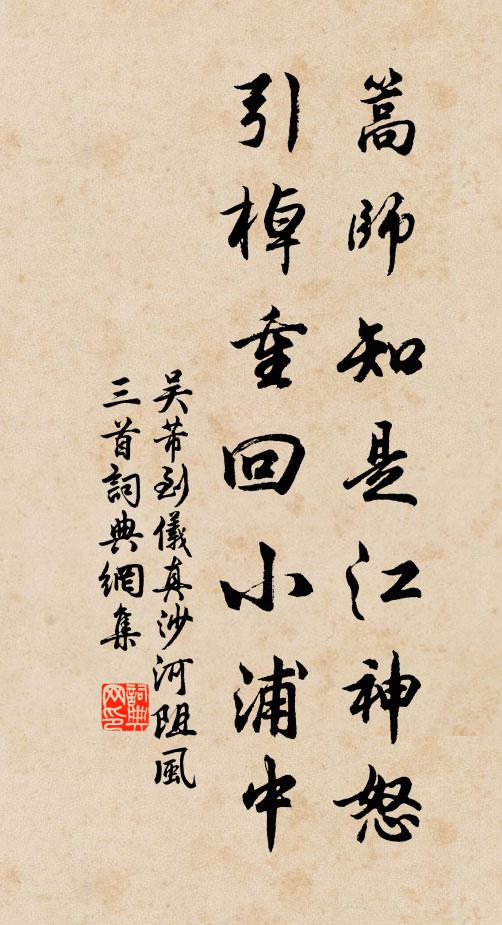 篙師知是江神怒
引棹重回小浦中
吴芾到儀真沙河阻風
三首詞典網集
詞典网印